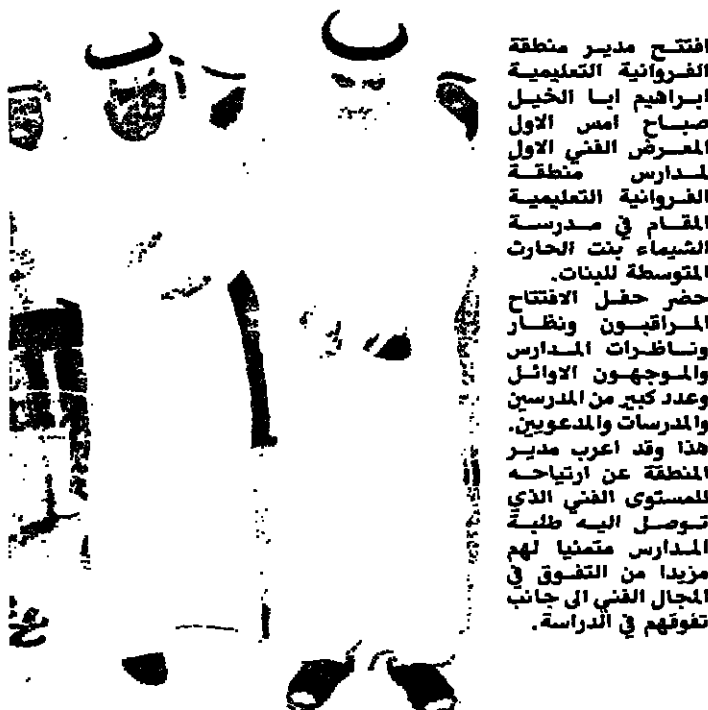 افتتح مدير منطقة
الفروانية التعليمية
ابراهيم ابا الخيل
صباح امس الاول
المعرض الفني الاول
لمدارس منطقة
الفروانية التعليمية
المقام في مدرسة
الشيماء بنت الحارث
المتوسطة للبنات.
حضر حفل الافتتاح
المراقبون ونظار
وناظرات المدارس
والموجهون الاوائل
وعدد كبير من المدرسين
والمدرسات والمدعويين.
هذا وقد اعرب مدير
المنطقة عن ارتياحه
للمستوى الفني الذي
توصل اليه طلبة
المدارس متمنيا لهم
مزيدا من التفوق في
المجال الفني الى جانب
تفوقهم في الدراسة.